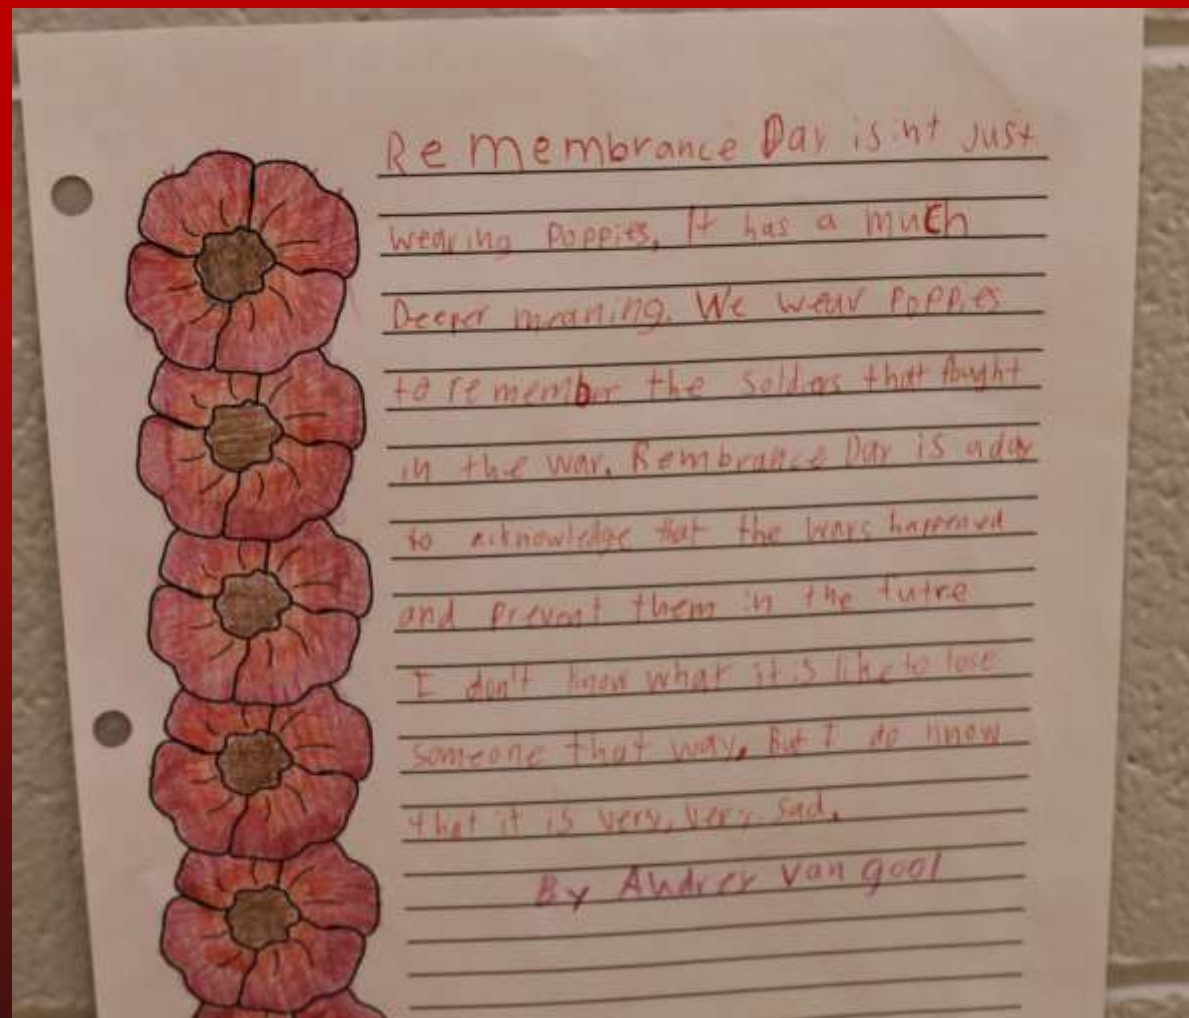 Remembrance Day is int Just
wearing Poppies, It has a much
Deeper meaning. We wear Poppies
to remember the Soldiers that fought
in the war. Rembrance Day is a day
to acknowledge that the wars happened
and prevent them in the futre
I don't know what it is like to lose
someone that way, But I do know
that it is very, very sad.
By Audrey Van gool